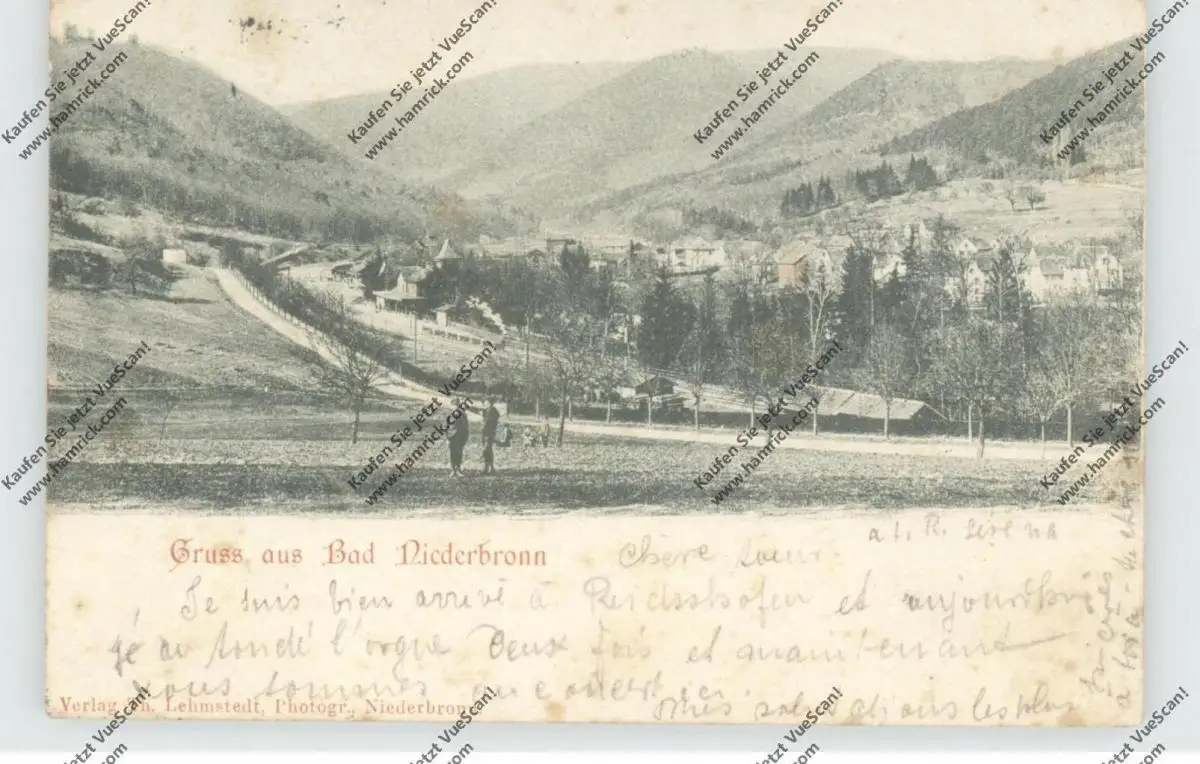 Gruss aus Bad Niederbronn
Chère sœur.
Je suis bien arrivé à Reichshofen et aujourd'hui
l'orgue deux fois et maintenant
nous sommes au concert ici.
Mes salutations les plus
Verlag Lehmstedt, Photogr., Niederbronn
Kaufen Sie jetzt VueScan!
www.hamrick.com